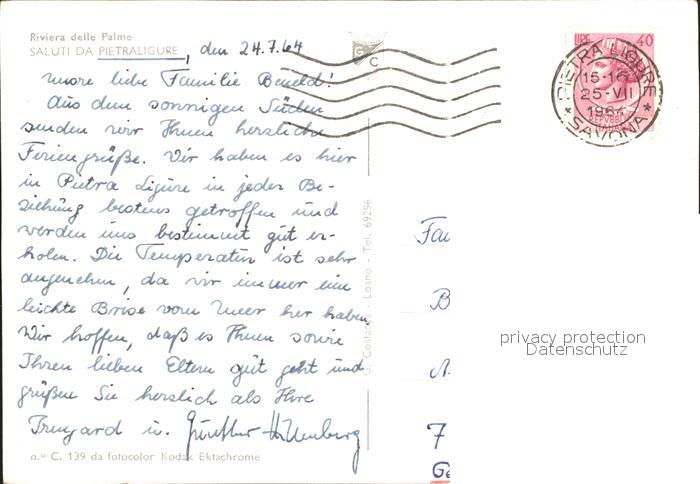 Riviera delle Palme
SALUTI DA PIETRALIGURE, den 24.7.64
Unsere liebe Familie
Aus dem sonnigen Süden
senden wir Ihnen herzliche
Feriengrüße. Wir haben es hier
in Pietra Ligure in jeder Be-
ziehung bestens getroffen und
werden uns bestimmt gut er-
holen. Die Temperatur ist sehr
angenehm, da wir immer eine
leichte Brise vom Meer her haben.
Wir hoffen, daß es Ihnen sowie
Ihren lieben Eltern gut geht und
grüßen Sie herzlich als Ihre
Irmgard u. Günther
n.º C. 139 da fotocolor Kodak Ektachrome
G C
G. Costanza - Loano - Tel. 69296
LIRE 40
PIETRA LIGURE
15-16
25-VII
1964
* SAVONA *
Fa
B
N.
7
Ge
privacy protection
Datenschutz